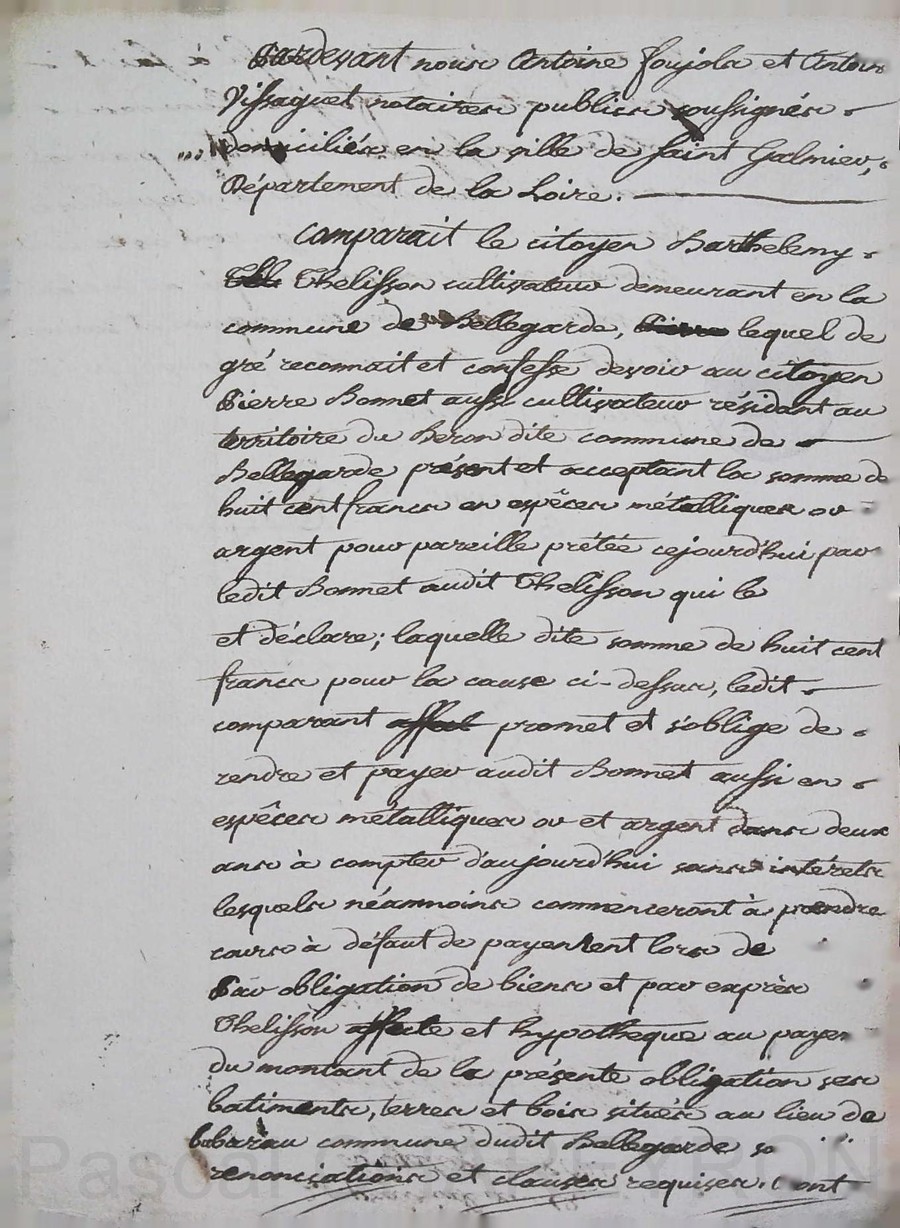 Pardevant nous Antoine foujols et Antoine
Vissaguet notaires publics soussignés
domiciliés en la ville de saint Galmier,
Département de la Loire.
Comparait le citoyen Barthelemy
Thelisson cultivateur demeurant en la
commune de Bellegarde, lequel de
gré reconnait et confesse devoir au citoyen
Pierre Bonnet aussi cultivateur résidant au
territoire du Beron dite commune de
Bellegarde présent et acceptant la somme de
huit cent francs en espêces métalliques or
argent pour pareille prêtée cejourd'hui par
ledit Bonnet audit Thelisson qui le
et déclare; laquelle dite somme de huit cent
francs pour la cause ci-dessus, ledit
comparant promet et s'oblige de
rendre et payer audit Bonnet aussi en
espêces métalliques or et argent dans deux
ans à compter d'aujourd'hui sans intérets
lesquels néanmoins commenceront à prendre
cours à défaut de payement lors de
Par obligation de biens et par exprès
Thelisson affecte et hypotheque au payem
du montant de la présente obligation ses
batiments, terres et bois situés au lieu de
commune dudit Bellegarde
renonciations et clauses requises. Cont
Pascal